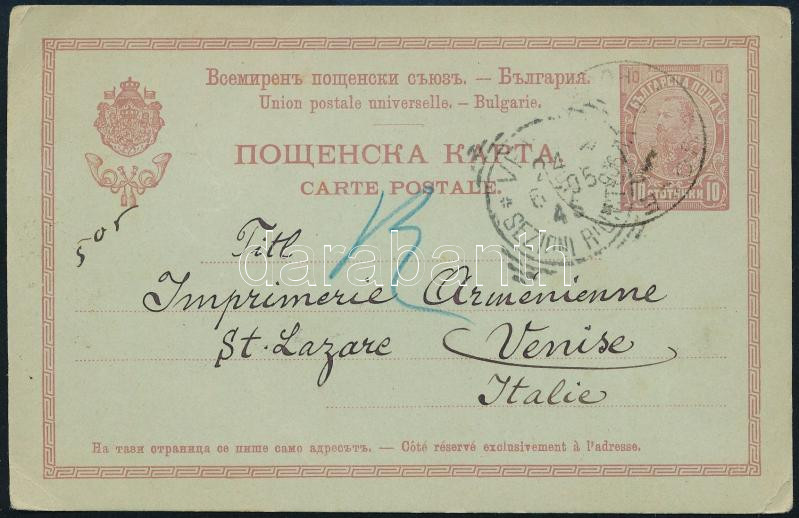 Всемиренъ пощенски съюзъ. — България.
Union postale universelle. — Bulgarie.
ПОЩЕНСКА КАРТА
CARTE POSTALE.
10 10
БЪЛГАРСКА ПОЩА
10 СТОТИНКИ 10
505
Titl
Imprimerie Arménienne
St. Lazare Venise
Italie
darabanth
На тази страница се пише само адресътъ. — Côté réservé exclusivement à l'adresse.